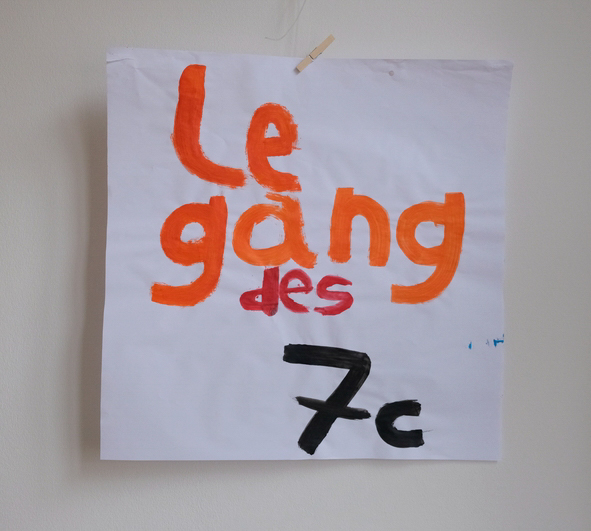 Le
gang
des
7c